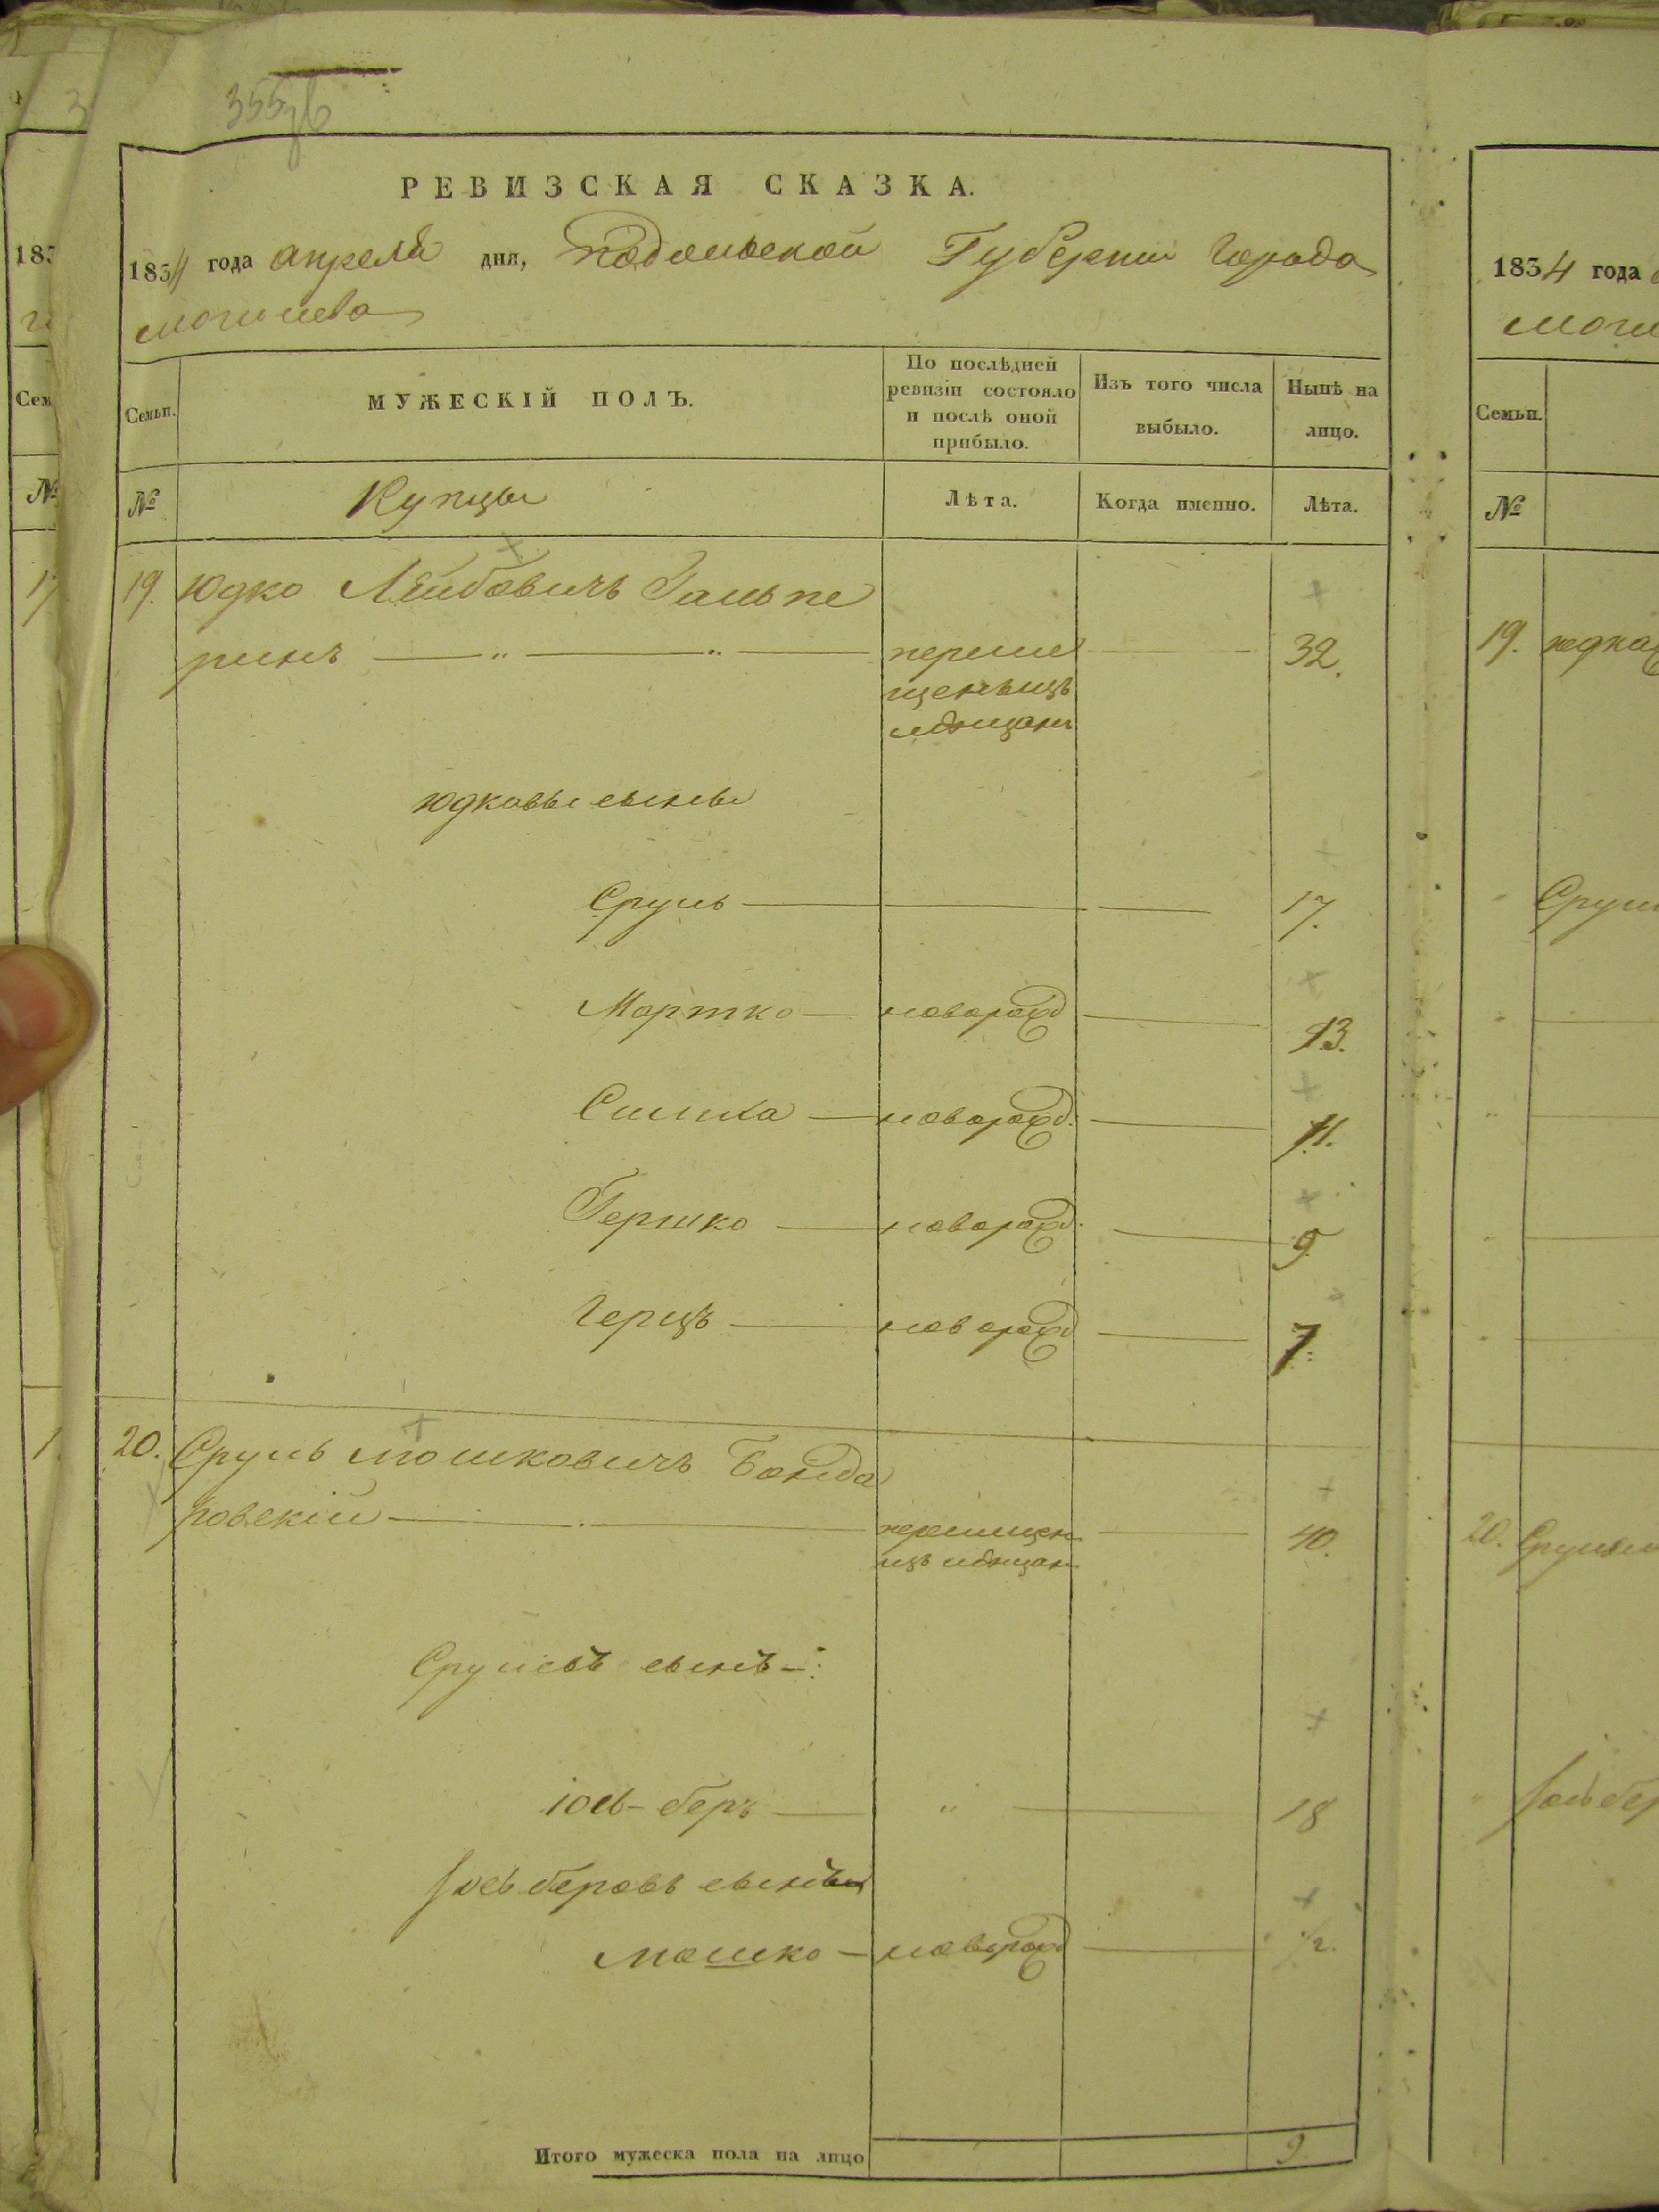 355об
РЕВИЗСКАЯ СКАЗКА.
1834 года апреля дня, Подольской Губернии Города
Могилева
Семьи.
МУЖЕСКІЙ ПОЛЪ.
По послѣдней ревизіи состояло и послѣ оной прибыло.
Изъ того числа выбыло.
Нынѣ на лицо.
№
Купцы
Лѣта.
Когда именно.
Лѣта.
19. Юдко Лейбовичъ Гальпе
ринъ — " — " — перемѣ — 32.
щенъ изъ
мѣщанъ
Юдковы сыны
Сруль — — 17.
Мортко — новорожд — 13.
Симха — новорожд. — 11.
Гершко — новорожд. — 9
Герцъ — новорожд — 7.
20. Сруль Мошковичъ Бонда
ровскій — перемѣщен — 40.
изъ мѣщан
Срулевъ сынъ
Іось-беръ — " — 18
Іосьберовъ сынъ
Мошко — новорожд — 1/2.
Итого мужеска пола на лицо 9
1834 года
Моги
Семьи.
№
19. Юдка
Срул
20. Срул
Іосьбер